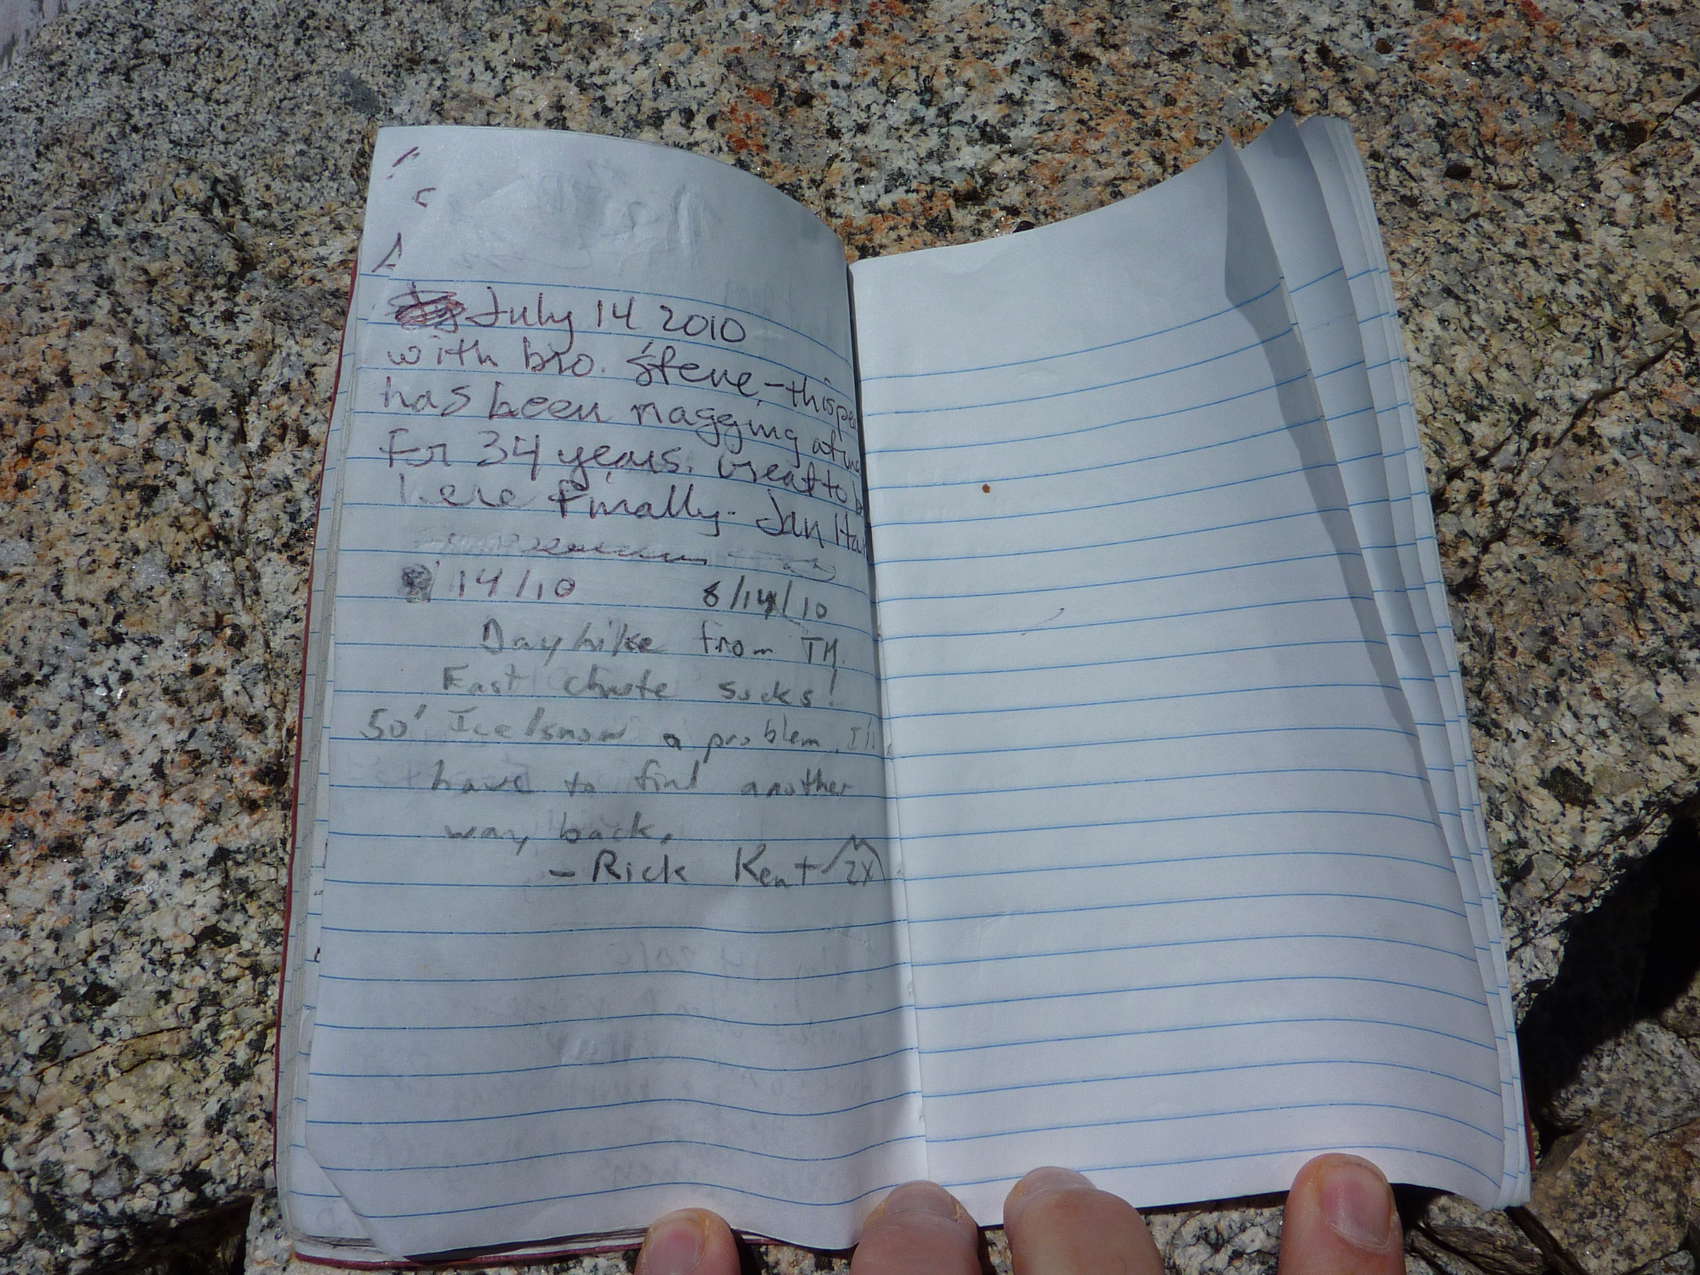 July 14 2010
with bro. Steve, - this pe
has been nagging at me
for 34 years. Great to b
here finally. Jan Ha
14/10 8/14/10
Dayhike from TM.
East chute sucks!
50' Ice/snow a problem. I'll
have to find another
way back.
- Rick Kent 2X